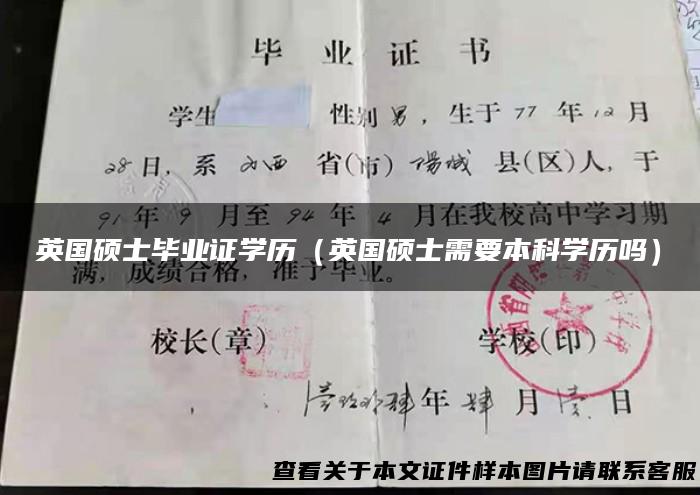 毕业证书
学生 性别男，生于77年12月
28日，系山西省(市)阳城县(区)人，于
91年9月至94年4月在我校高中学习期
英国硕士毕业证学历（英国硕士需要本科学历吗）
满，成绩合格，准予毕业。
校长(章) 学校(印)
年肆月壹日
查看关于本文证件样本图片请联系客服